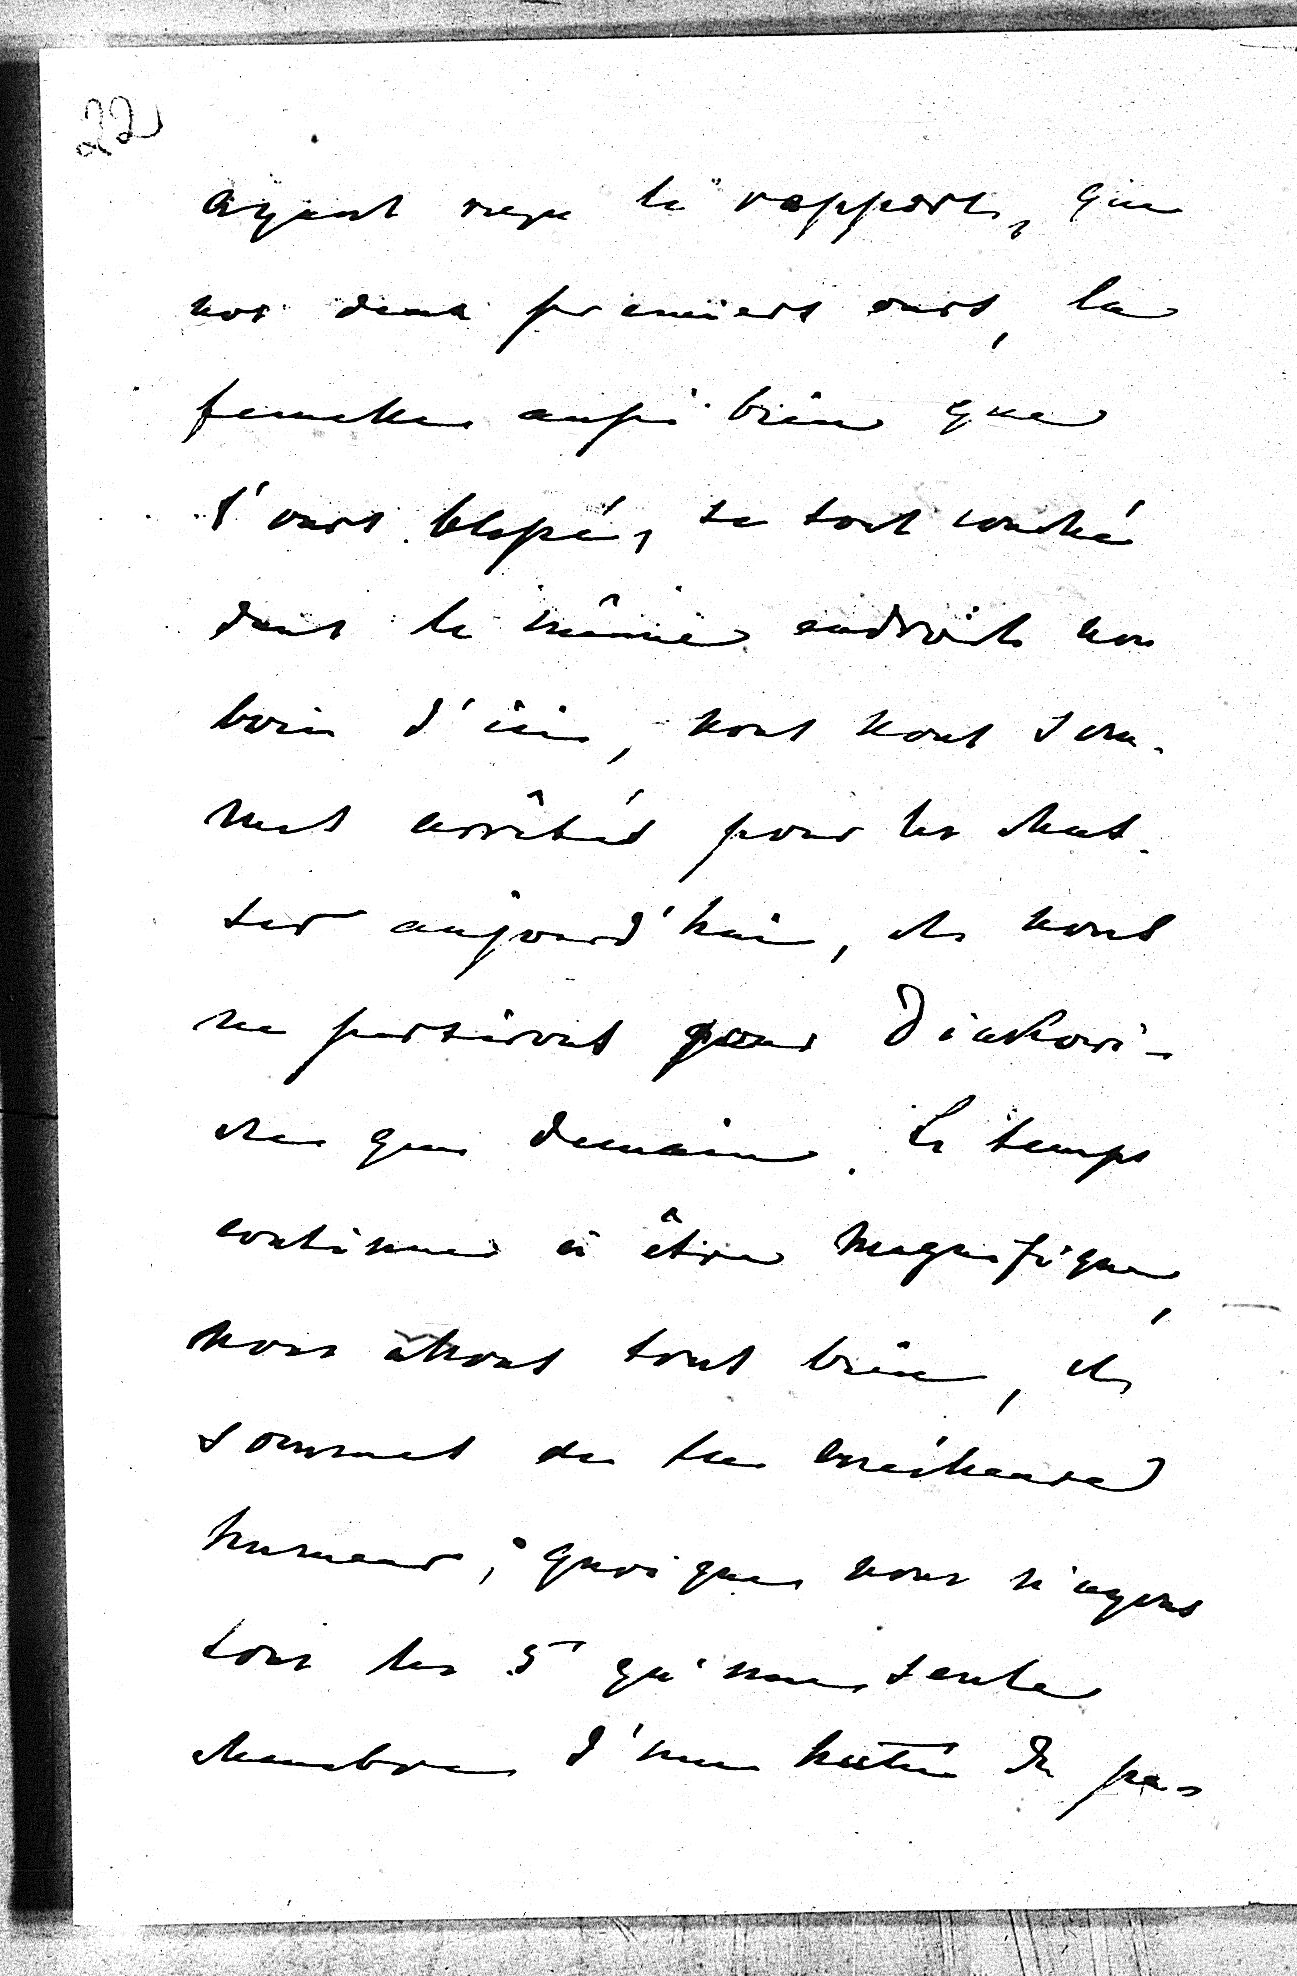 22
ayant reçu le rapport, que
nos deux premiers ours, la
femelle aussi bien que
l'ours blessé, se sont couché
dans le même endroit non
loin d'ici, nous nous som-
mes arrêtés pour les chas-
ser aujourd'hui, et nous
ne partirons pour Diakovi-
cha que demain. Le temps
continue à être magnifique,
nous allons tous bien, et
sommes de la meilleure
humeur; quoique nous n'ayons
tous les 5 qu'une seule
chambre d'une hutte de pay-